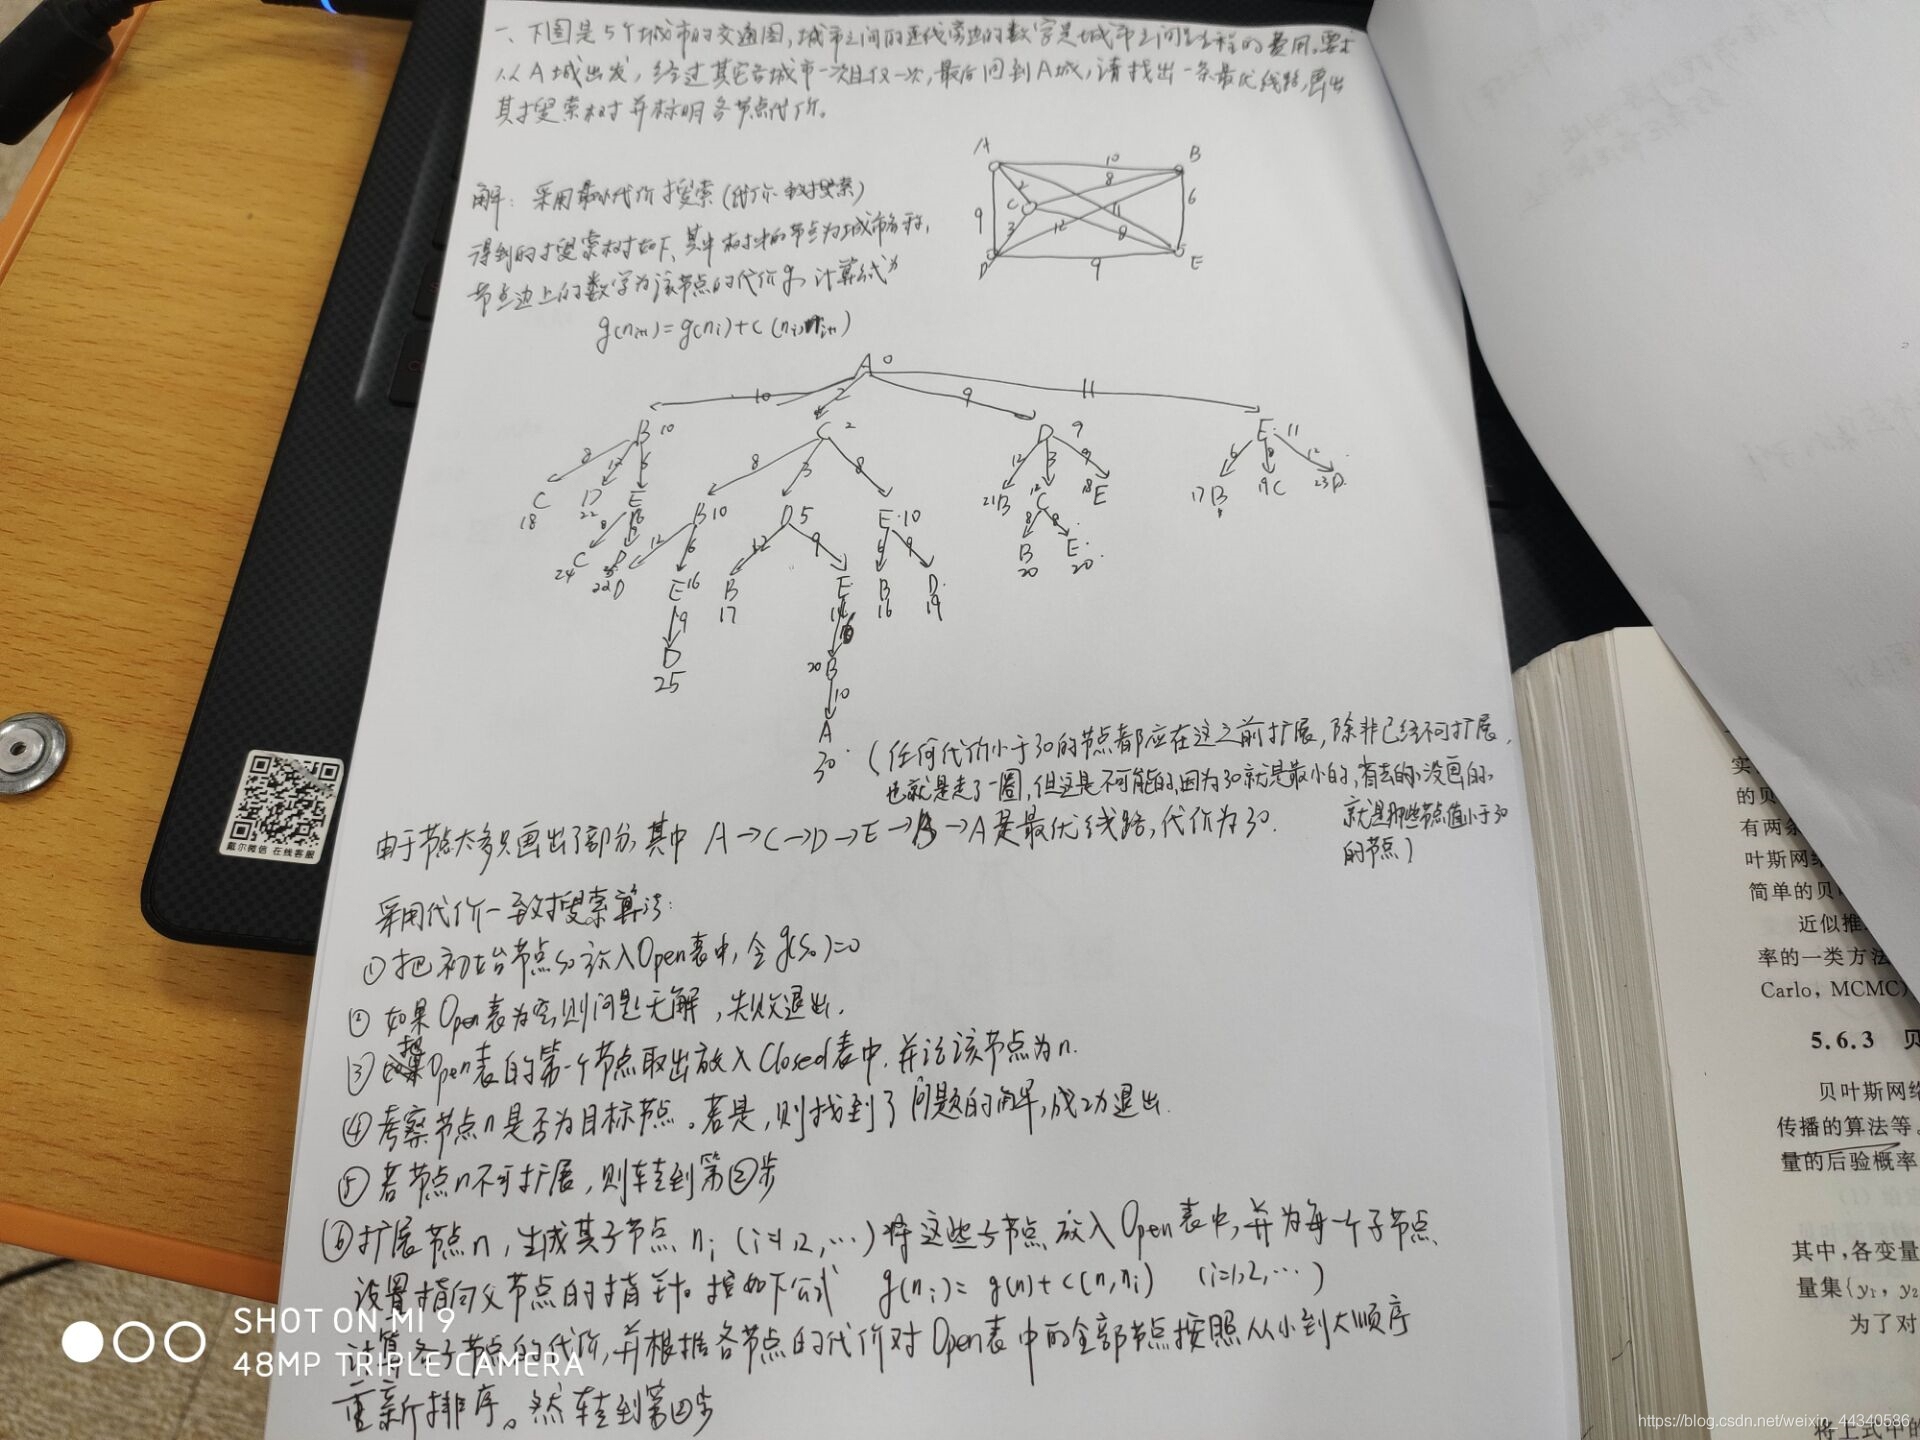 一、下图是5个城市的交通图,城市之间的连线旁边的数字是城市之间路程的费用。要求
从A城出发,经过其它各城市一次且仅一次,最后回到A城,请找出一条最优线路,画出
其搜索树并标明各节点代价。
解:采用最小代价搜索(代价一致搜索)
得到的搜索树如下、其中树中的节点为城市名称,
节点边上的数字为该节点的代价g,计算公式为
g(ni+1)=g(ni)+c(ni,ni+1)
A 10 B
2 8
C 11 6
9 3 12 8
D 9 E
A 0
10 2 9 11
B 10 C 2 D 9 E 11
8 12 6 8 3 8 12 3 9 6 8 12
C 18 D 22 E 16 B 10 D 5 E 10 21 B 12 C 18 E 17 B 19 C 23 D
8 9 12 6 12 9 6 9 8 8
C 24 D 22 D E 16 B 17 E B 16 D 19 B 20 E 20
9
D 25 20 B
10
A
30
(任何代价小于30的节点都应在这之前扩展,除非已经不可扩展,
也就是走了一圈,但这是不可能的,因为30就是最小的,省去的没画的
就是那些节点值小于30
的节点)
由于节点太多只画出了部分,其中 A→C→D→E→B→A是最优线路,代价为30.
采用代价一致搜索算法:
①把初始节点S0放入Open表中,令g(S0)=0
②如果Open表为空,则问题无解,失败退出.
③把Open表的第一个节点取出放入Closed表中.并记该节点为n.
④考察节点n是否为目标节点。若是,则找到了问题的解,成功退出.
⑤若节点n不可扩展,则转到第②步
⑥扩展节点n,生成其子节点ni(i=1,2,…)将这些子节点放入Open表中,并为每一个子节点
设置指向父节点的指针.按如下公式 g(ni)=g(n)+c(n,ni) (i=1,2,…)
计算各子节点的代价,并根据各节点的代价对Open表中的全部节点按照从小到大顺序
重新排序。然转到第②步
戴尔微信 在线客服
SHOT ON MI 9
48MP TRIPLE CAMERA
的贝
有两条
叶斯网络
简单的贝
近似推
率的一类方法
Carlo, MCMC)
5.6.3 贝
贝叶斯网络
传播的算法等。
量的后验概率
其中,各变量
量集{y1, y2
为了对
将上式中的
https://blog.csdn.net/weixin_44340586